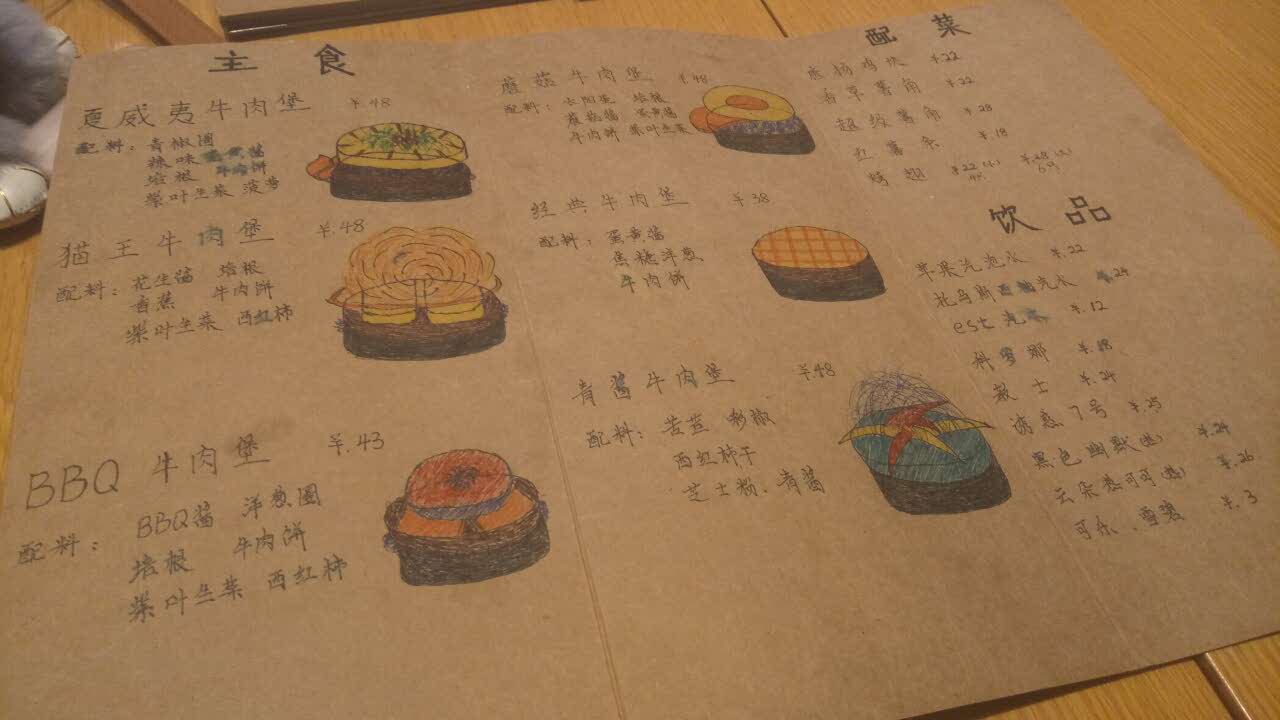 主食
夏威夷牛肉堡 ¥.48
配料：青椒圈
辣味蛋黄酱
培根 牛肉饼
紫叶生菜 菠萝
猫王牛肉堡 ¥.48
配料：花生酱 培根
香蕉 牛肉饼
紫叶生菜 西红柿
BBQ 牛肉堡 ¥.43
配料： BBQ酱 洋葱圈
培根 牛肉饼
紫叶生菜 西红柿
蘑菇牛肉堡 ¥.48
配料：太阳蛋 培根
蘑菇酱 蛋黄酱
牛肉饼 紫叶生菜
经典牛肉堡 ¥38
配料：蛋黄酱
焦糖洋葱
牛肉饼
青酱牛肉堡 ¥48
配料：苦苣 彩椒
西红柿干
芝士粉、青酱
配菜
鸡块 ¥.22
香草薯角 ¥.22
超级薯角 ¥.28
红薯条 ¥.18
烤翅 ¥.22(小) ¥.28(大)
饮品
苹果汽泡水 ¥.22
托马斯西柚汽水 ¥.24
est 汽水 ¥.12
科罗娜 ¥.18
教士 ¥.24
诱惑7号 ¥.25
黑色幽默(热) ¥.24
云朵热可可(热) ¥.26
可乐、雪碧 ¥.3